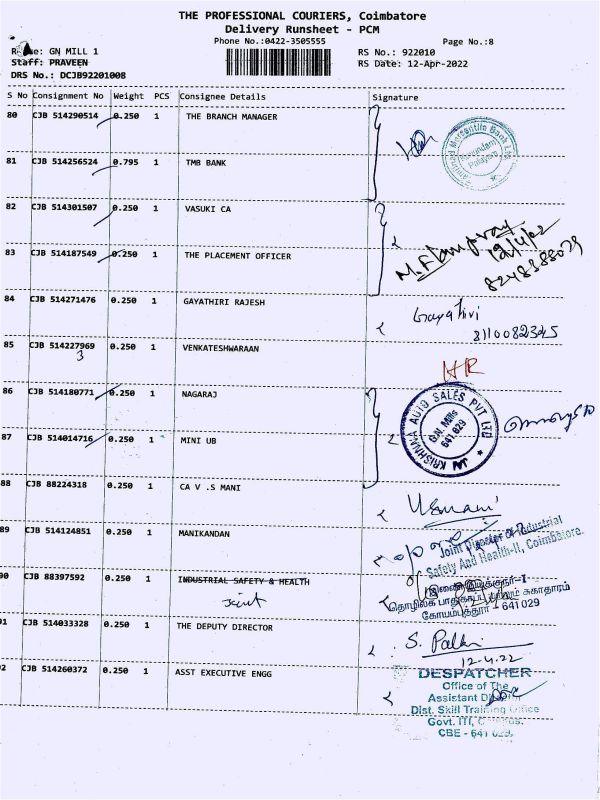 THE PROFESSIONAL COURIERS, Coimbatore
Delivery Runsheet - PCM
Phone No.:0422-3505555 Page No.:8
GN MILL 1 RS No.: 922010
Staff: PRAVEEN RS Date: 12-Apr-2022
DRS No.: DCJB92201008
S No Consignment No Weight PCS Consignee Details Signature
80 CJB 514290514 0.250 1 THE BRANCH MANAGER
Tamilnad Mercantile Bank Ltd
81 CJB 514256524 0.795 1 TMB BANK
82 CJB 514301507 0.250 1 VASUKI CA
12/4/22
83 CJB 514187549 0.250 1 THE PLACEMENT OFFICER
8248388029
84 CJB 514271476 0.250 1 GAYATHIRI RAJESH
Gayathiri
8110082345
85 CJB 514227969 0.250 1 VENKATESHWARAAN
3
HR
86 CJB 514180771 0.250 1 NAGARAJ
JAI KRISHNAA AUTO SALES PVT LTD
G.N. Mills
641 029
87 CJB 514014716 0.250 1 MINI UB
88 CJB 88224318 0.250 1 CA V .S MANI
89 CJB 514124851 0.250 1 MANIKANDAN
Joint Director of Industrial
Safety And Health-II, Coimbatore.
90 CJB 88397592 0.250 1 INDUSTRIAL SAFETY & HEALTH
Joint
கோயம்புத்தூர் - 641 029
91 CJB 514033328 0.250 1 THE DEPUTY DIRECTOR
12-4-22
92 CJB 514260372 0.250 1 ASST EXECUTIVE ENGG
DESPATCHER
Office of The
Assistant
Dist. Skill Training Office
Govt. ITI,
CBE - 641 029.